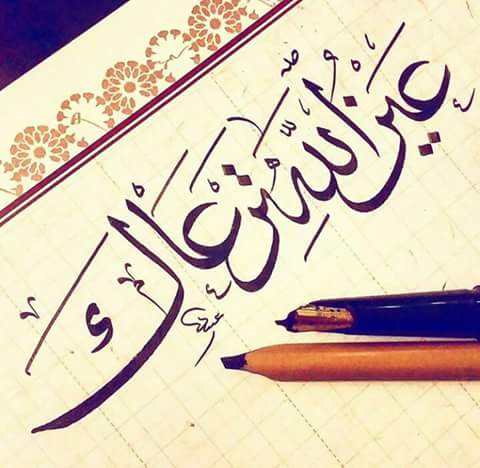 عين الله ترعاك